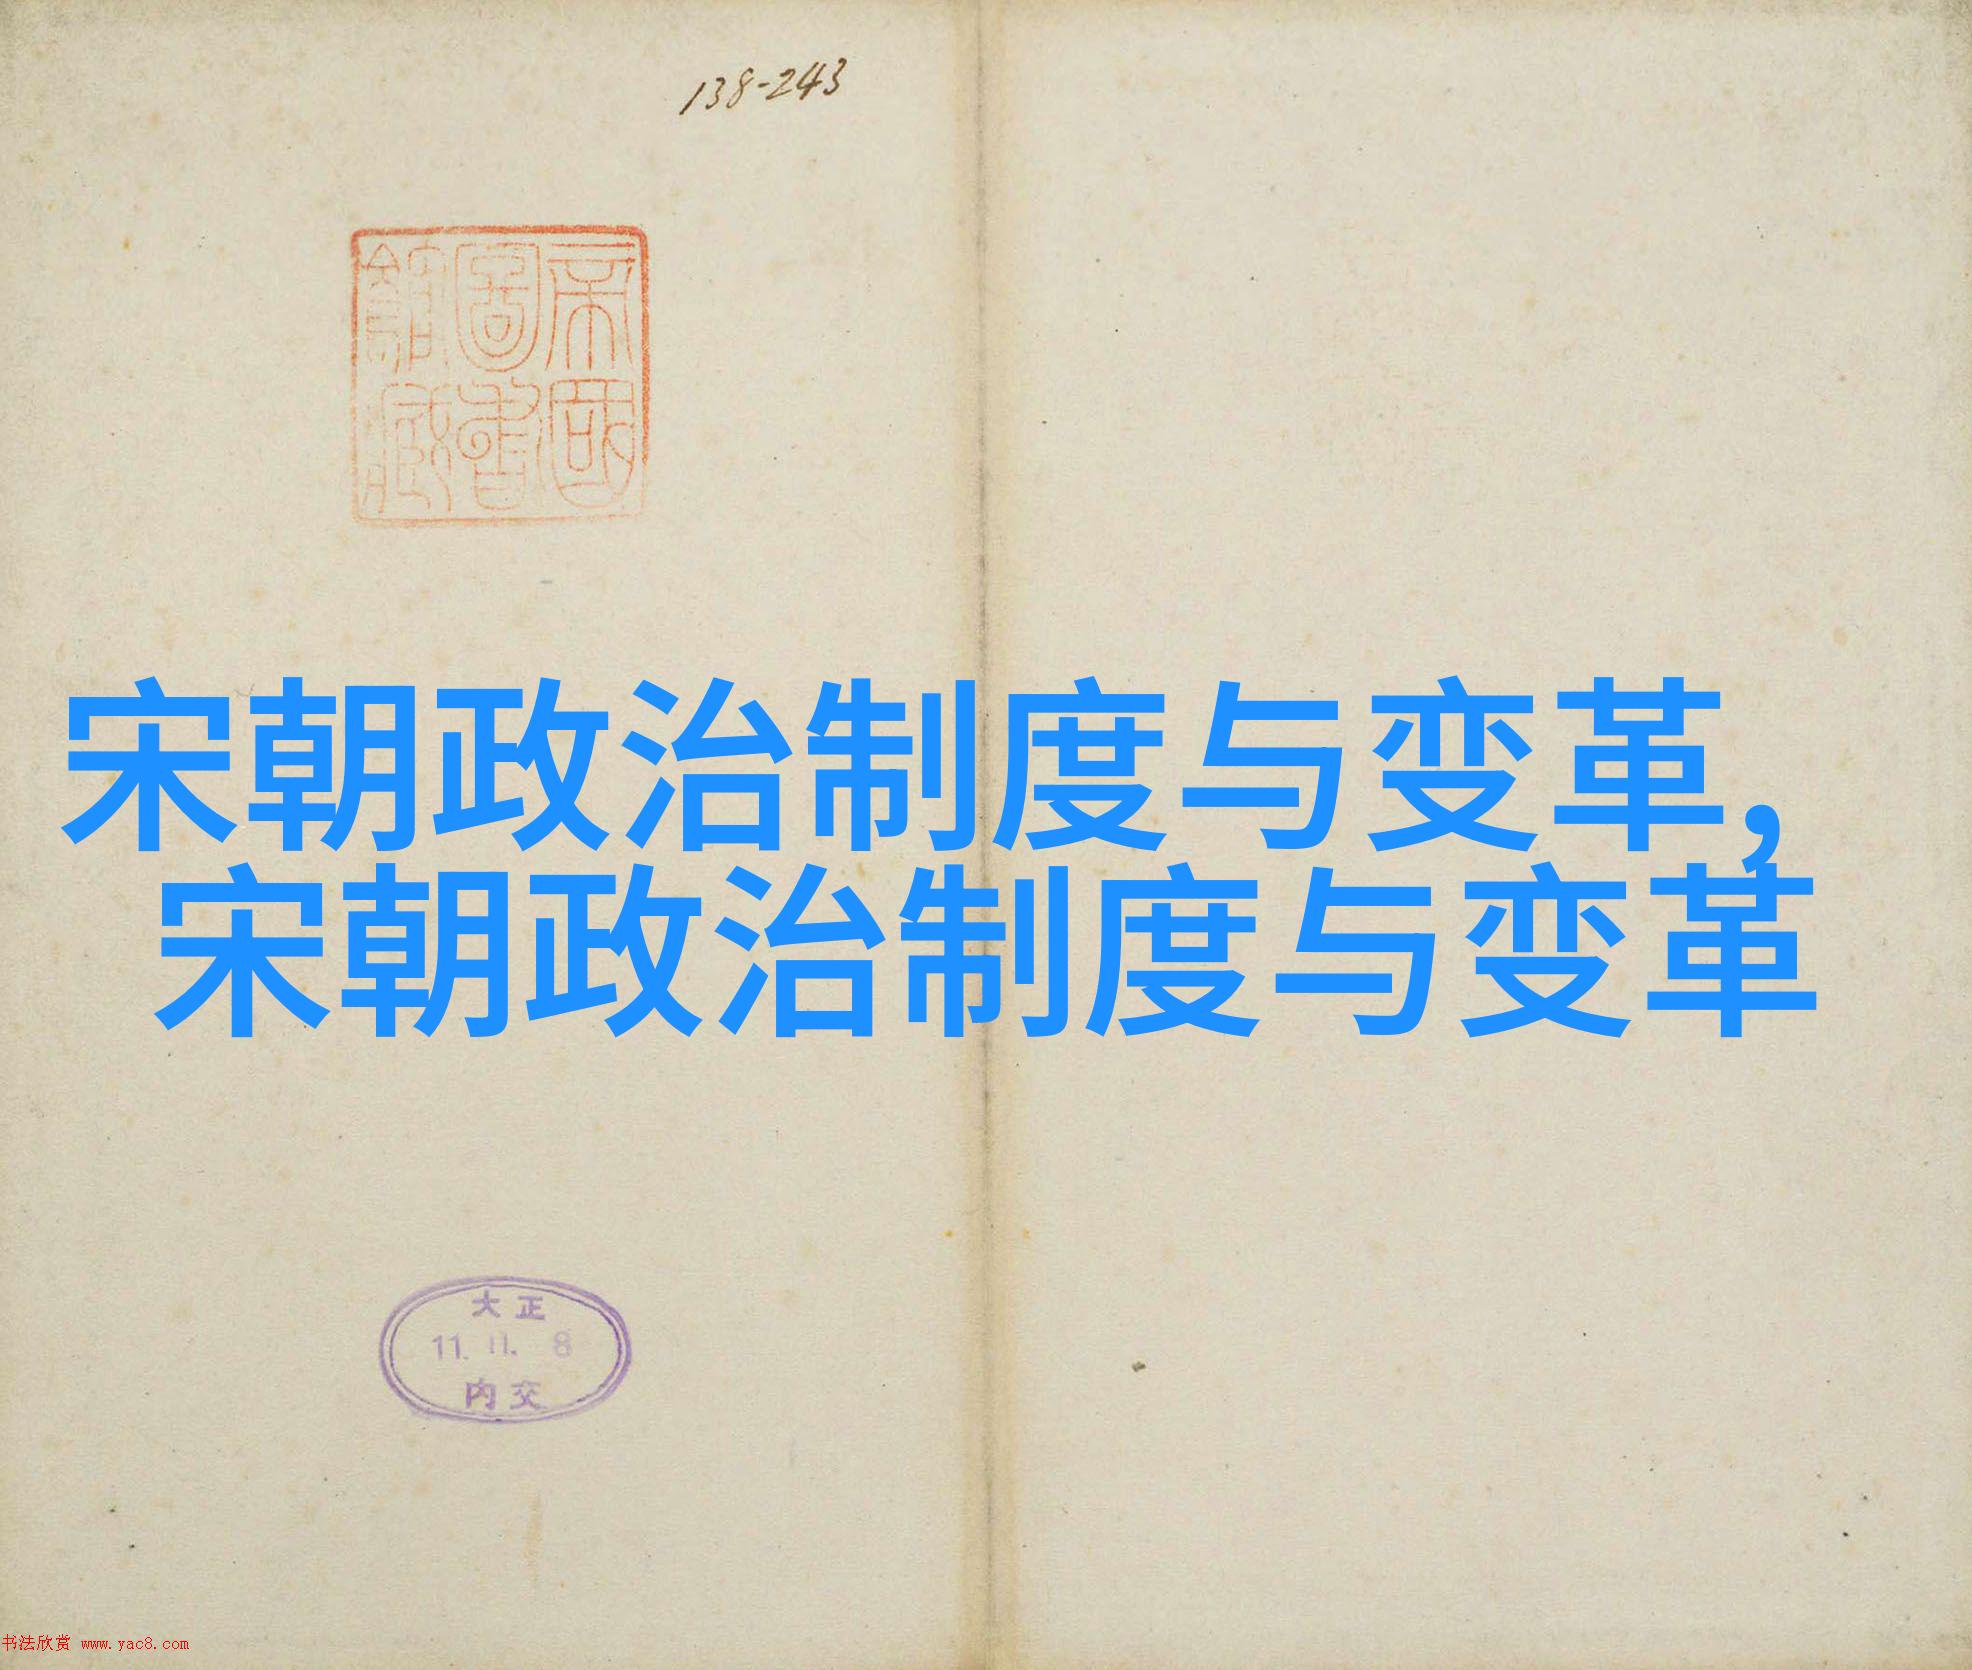 138-243
帝國
圖書
館藏
宋朝政治制度与变革,
宋朝政治制度与变革
大正
11. 11. 8
内交
书法欣赏 www.yac8.com